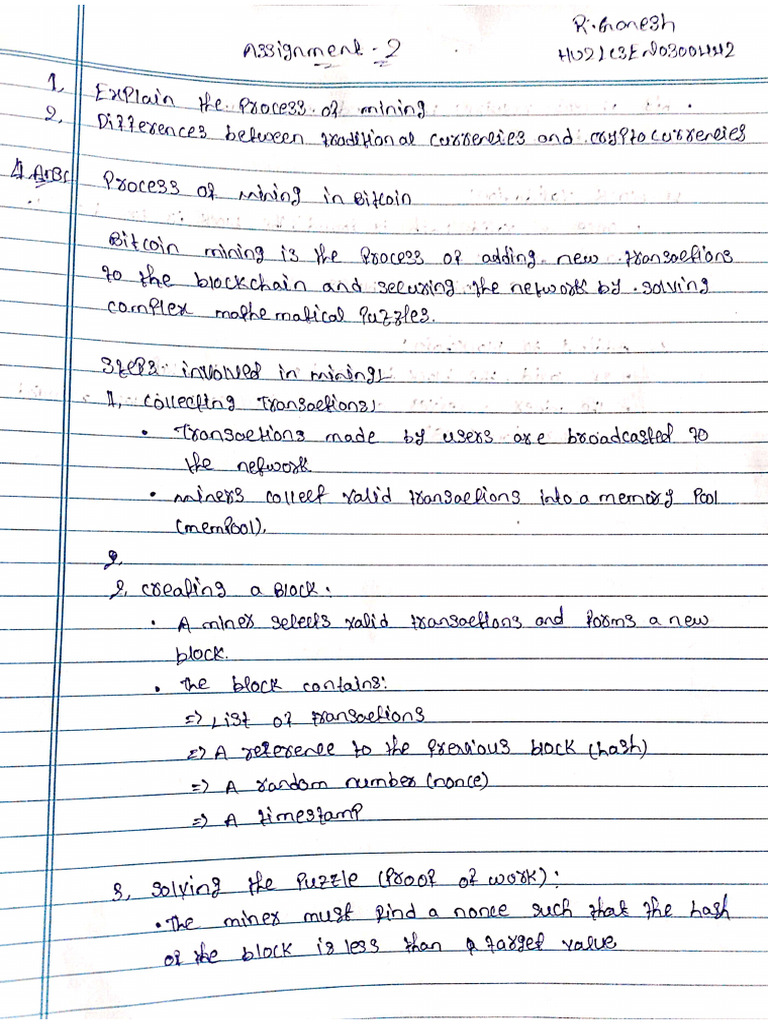 R. Ganesh
Assignment - 2
1, Explain the process of mining
2, Differences between traditional currencies and crypto currencies
1 Ans: Process of mining in Bitcoin
Bitcoin mining is the process of adding new transactions
to the blockchain and securing the network by solving
complex mathematical puzzles.
Steps involved in mining:
1, Collecting Transactions:
• Transactions made by users are broadcasted to
the network
• miners collect valid transactions into a memory pool
(mempool).
2,
2, Creating a Block:
• A miner selects valid transactions and forms a new
block.
• The block contains:
=> List of transactions
=> A reference to the previous block (hash)
=> A random number (nonce)
=> A timestamp
3, Solving the puzzle (Proof of work):
• The miner must find a nonce such that the hash
of the block is less than a target value